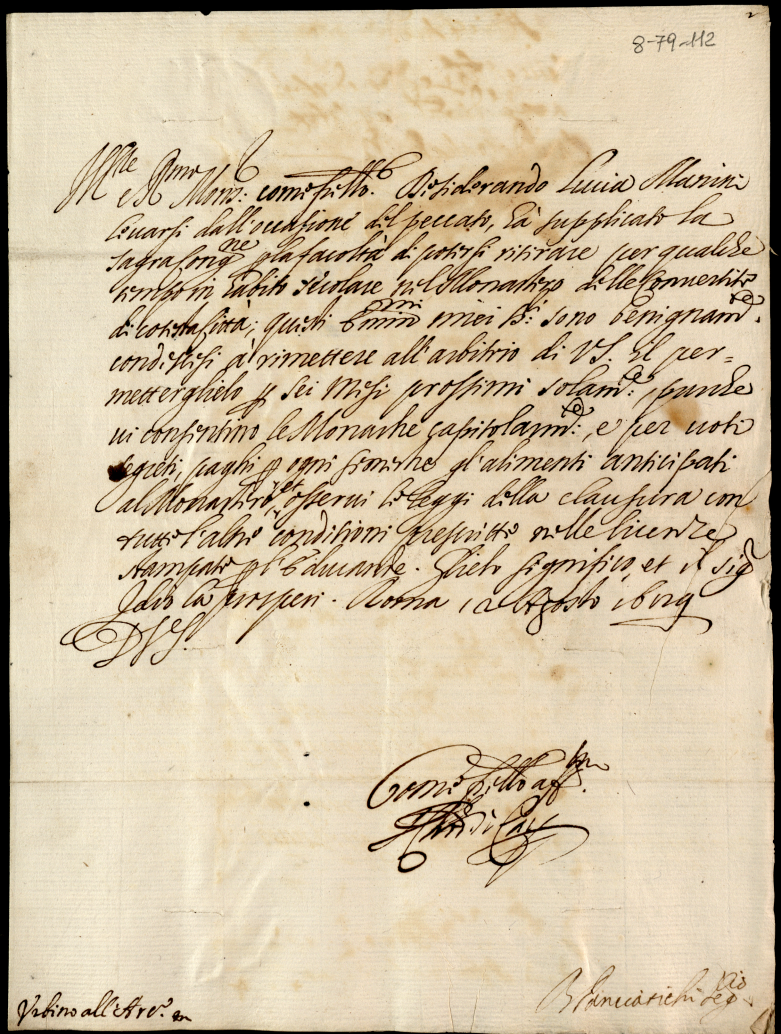 8-79-112
2
M.lto Ill.re
e R.mo Mons.r come fratello. Desiderando Lucia Marini
levarsi dall'occasione del peccato, hà supplicato la
sagra Cong.ne p la facoltà di potersi ritirare per qualche
tempo in habito secolare nel Monastero delle Convertite
di cotesta Città; questi Em.mi miei SS.ri sono benignam.te
condescesi à rimettere all'arbitrio di VS. El per=
metterglielo p sei Mesi prossimi solam.te, purche
vi consentino le Monache capitolarm.te, e per voti
segreti, paghi p ogni semestre gl'alimenti anticipati
al Monastero, et osservi le leggi della clausura con
tutte l'altre condizioni prescritte nelle licenze
stampate p l'Educande. Glielo significo, et il Sig.r
Iddio la prosperi. Roma, Agosto
DVS
Come fratello aff.mo
Il Card. di
Urbino all'Arc.o
B. Panciatichi Seg.rio